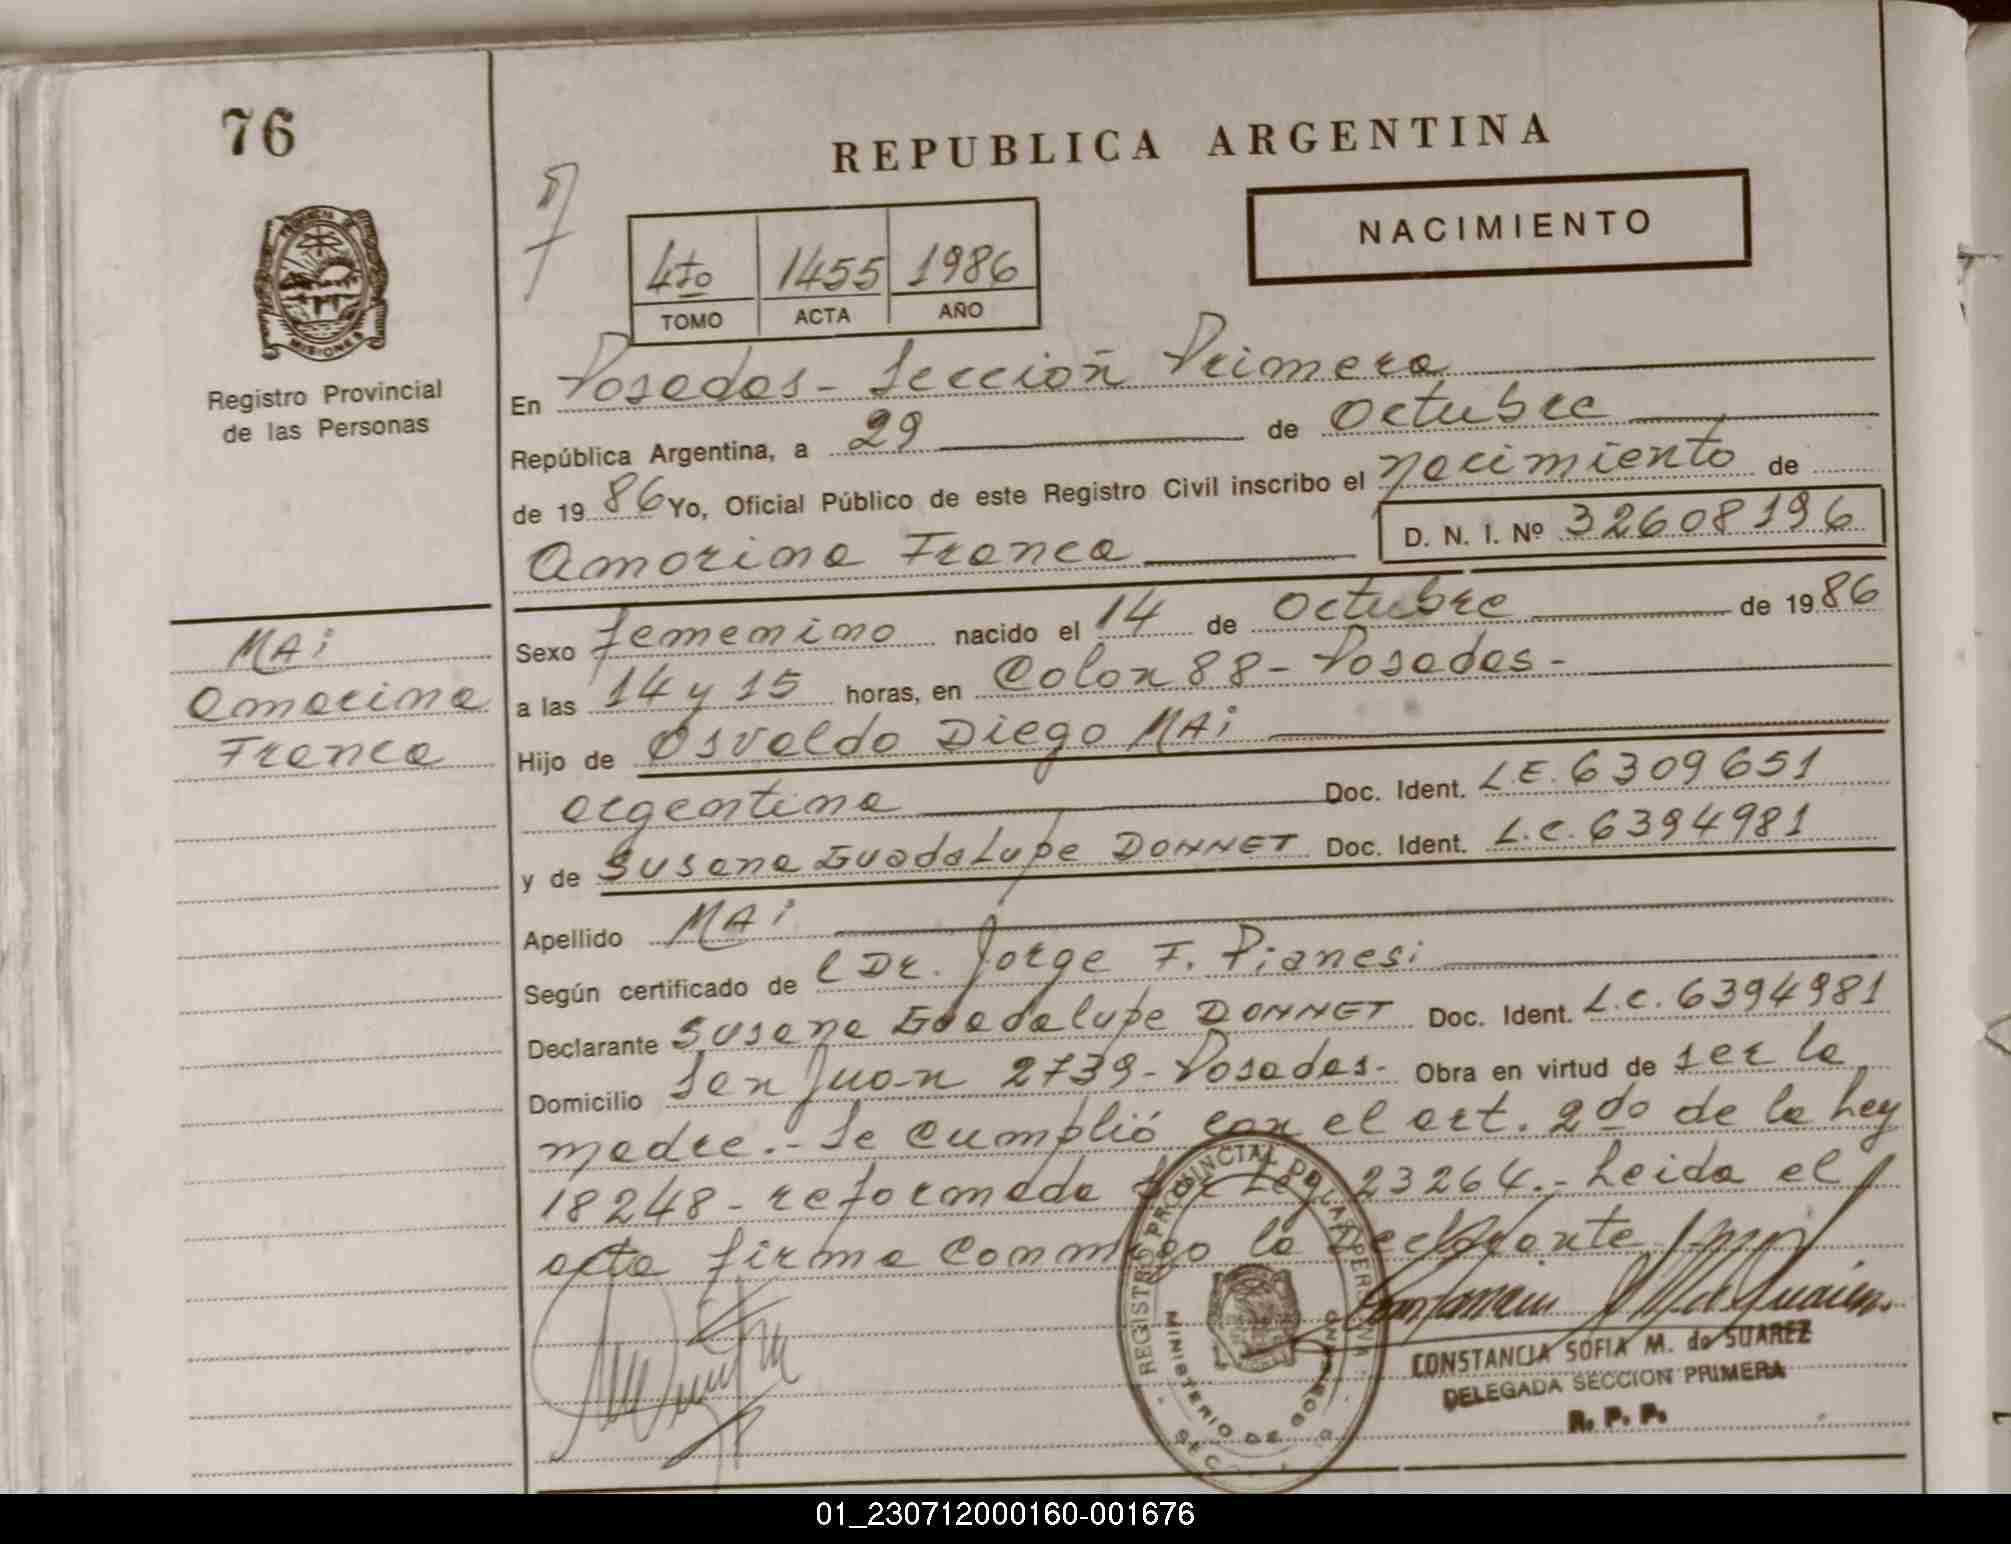 76
REPUBLICA ARGENTINA
NACIMIENTO
4to 1455 1986
TOMO ACTA AÑO
MISIONES
Registro Provincial
de las Personas
En Posadas - Sección Primera
República Argentina, a 29 de Octubre
de 1986 Yo, Oficial Público de este Registro Civil inscribo el nacimiento de
Amorina Franca D. N. I. Nº 32608196
MAi
Amorina
Franca
Sexo femenino nacido el 14 de Octubre de 1986
a las 14 y 15 horas, en Colon 88 - Posadas -
Hijo de Osvaldo Diego MAi
argentina Doc. Ident. L.E. 6309651
y de Susana Guadalupe DONNET Doc. Ident. L.C. 6394981
Apellido MAi
Según certificado de l Dr. Jorge F. Pianesi
Declarante Susana Guadalupe DONNET Doc. Ident. L.C. 6394981
Domicilio San Juan 2739 - Posadas - Obra en virtud de ser la
madre. - Se cumplió con el art. 2do de la Ley
18248 - reformada por Ley 23264. - Leida el
acta firma conmigo la declarante
REGISTRO PROVINCIAL DE LAS PERSONAS
MINISTERIO DE GOBIERNO
CONSTANCIA SOFIA M. de SUAREZ
DELEGADA SECCION PRIMERA
R. P. P.
01_230712000160-001676